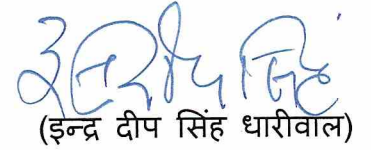 इन्द्र दीप सिंह
(इन्द्र दीप सिंह धारीवाल)